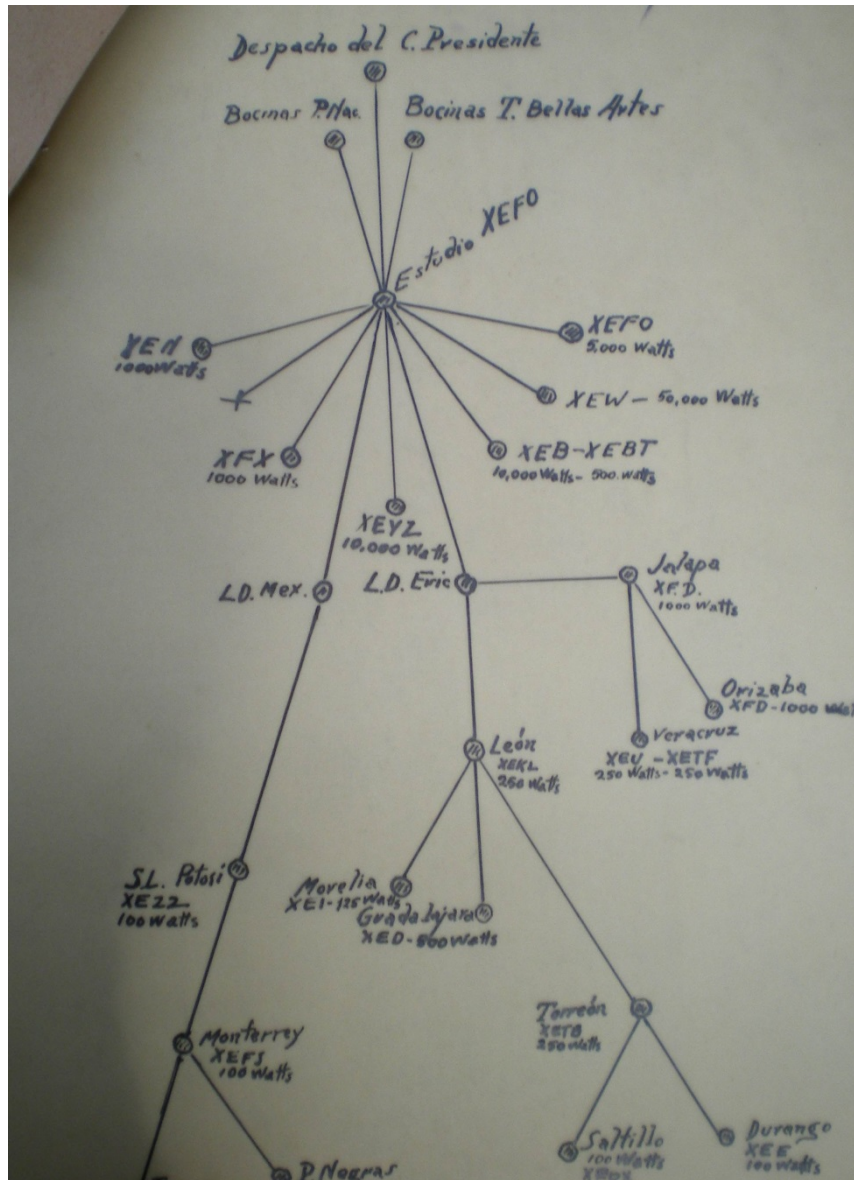 Despacho del C. Presidente
Bocinas P. Nac.
Bocinas T. Bellas Artes
Estudio XEFO
XEN
1000 Watts
XEFO
5,000 Watts
XEW - 50,000 Watts
XFX
1000 Watts
XEB-XEBT
10,000 Watts - 500 watts
XEYZ
10,000 Watts
L.D. Mex.
L.D. Eric
Jalapa
XF.D.
1000 Watts
Orizaba
XFD-1000 Wat
Veracruz
XEU - XETF
250 Watts - 250 Watts
León
XEKL
250 Watts
S.L. Potosí
XEZZ
100 Watts
Morelia
XEI-125 Watts
Guadalajara
XED-500 Watts
Torreón
XETB
250 Watts
Monterrey
XEFJ
100 Watts
Saltillo
100 Watts
Durango
XEE
100 Watts
P. Negras